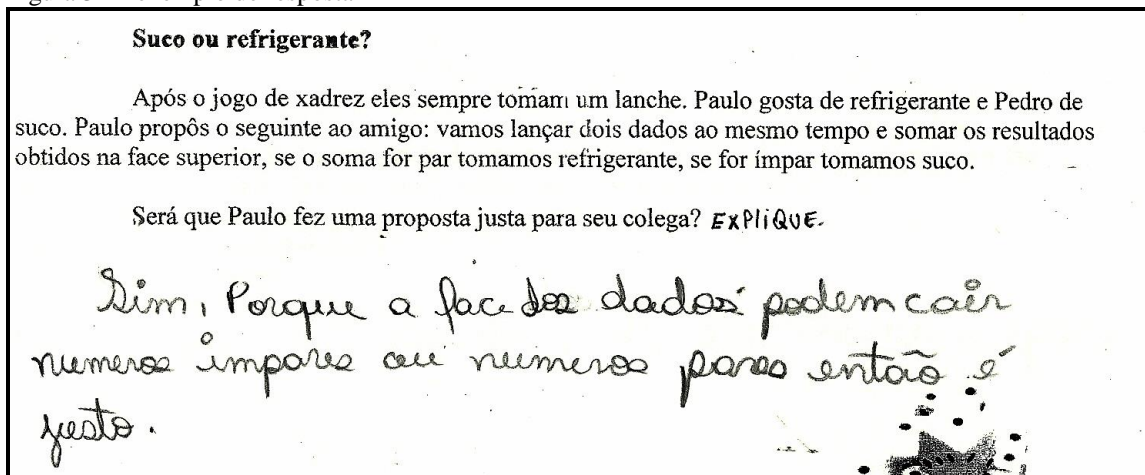 Suco ou refrigerante?
Após o jogo de xadrez eles sempre tomam um lanche. Paulo gosta de refrigerante e Pedro de
suco. Paulo propôs o seguinte ao amigo: vamos lançar dois dados ao mesmo tempo e somar os resultados
obtidos na face superior, se o soma for par tomamos refrigerante, se for ímpar tomamos suco.
Será que Paulo fez uma proposta justa para seu colega? EXPLIQUE.
Sim, Porque a face dos dados podem cair
numeros impares ou numeros pares então é
justo.